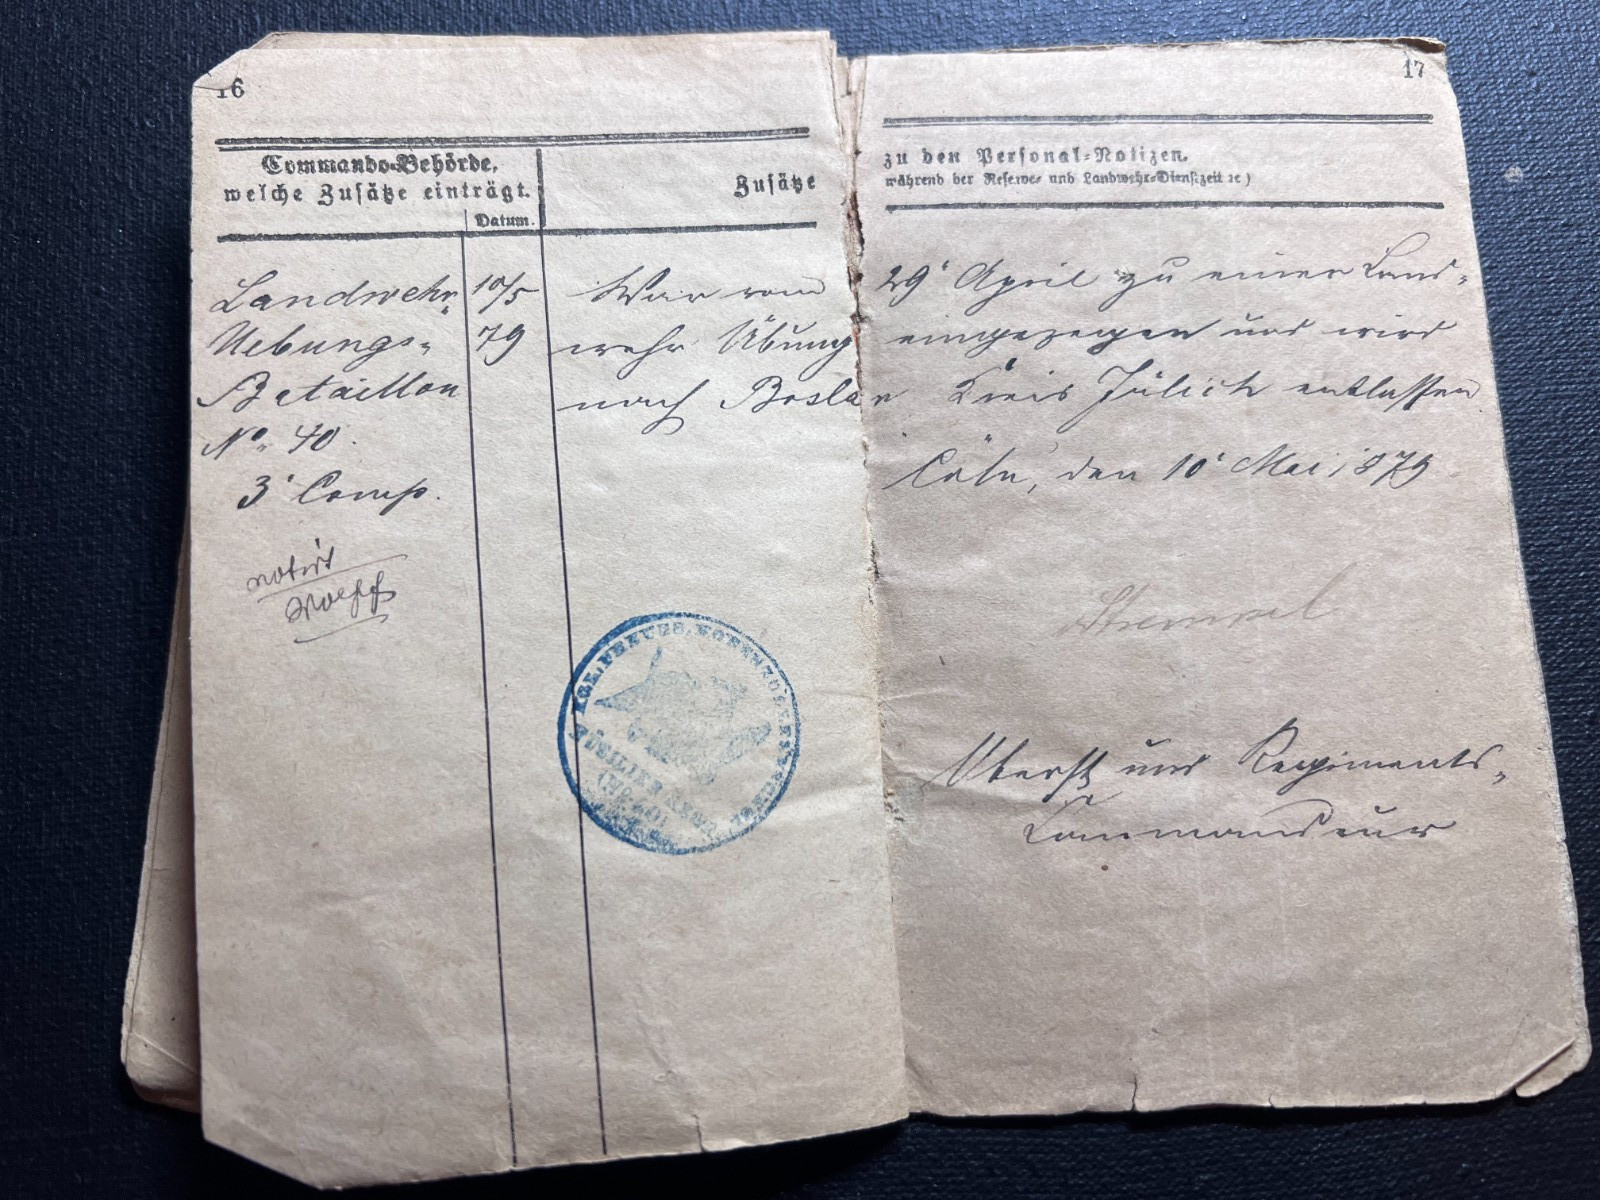 16
Commando-Behörde,
welche Zusätze einträgt.
Datum.
Zusätze
Landwehr-
Uebungs-
Bataillon
No. 40.
3' Comp.
10/5
79
War vom
wehr Übung
nach Boslar
notirt
KGL. PREUSS. HOHENZOLLERNSCHES
FÜSILIER REGMT.
(No. 40)
17
zu den Personal-Notizen.
während der Reserve- und Landwehr-Dienstzeit ꝛc)
29' April zu einer Land-
eingezogen und wird
Kreis Jülich entlassen
Cöln, den 10' Mai 1879
Stempel
Oberst und Regiments-
Commandeur